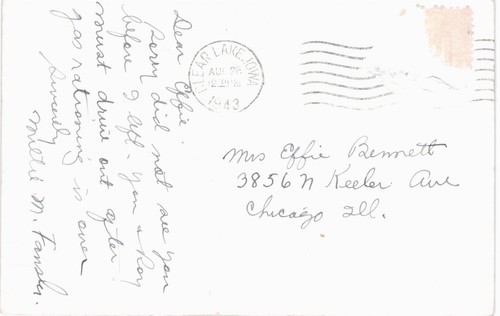 Dear Effie.
Sorry did not see you
before I left. You & Roy
must drive out after
gas rationing is over
Sincerely
M.
CLEAR LAKE, IOWA
AUG 26
1943
Mrs Effie Bennett
3856 N Keeler Ave
Chicago Ill.